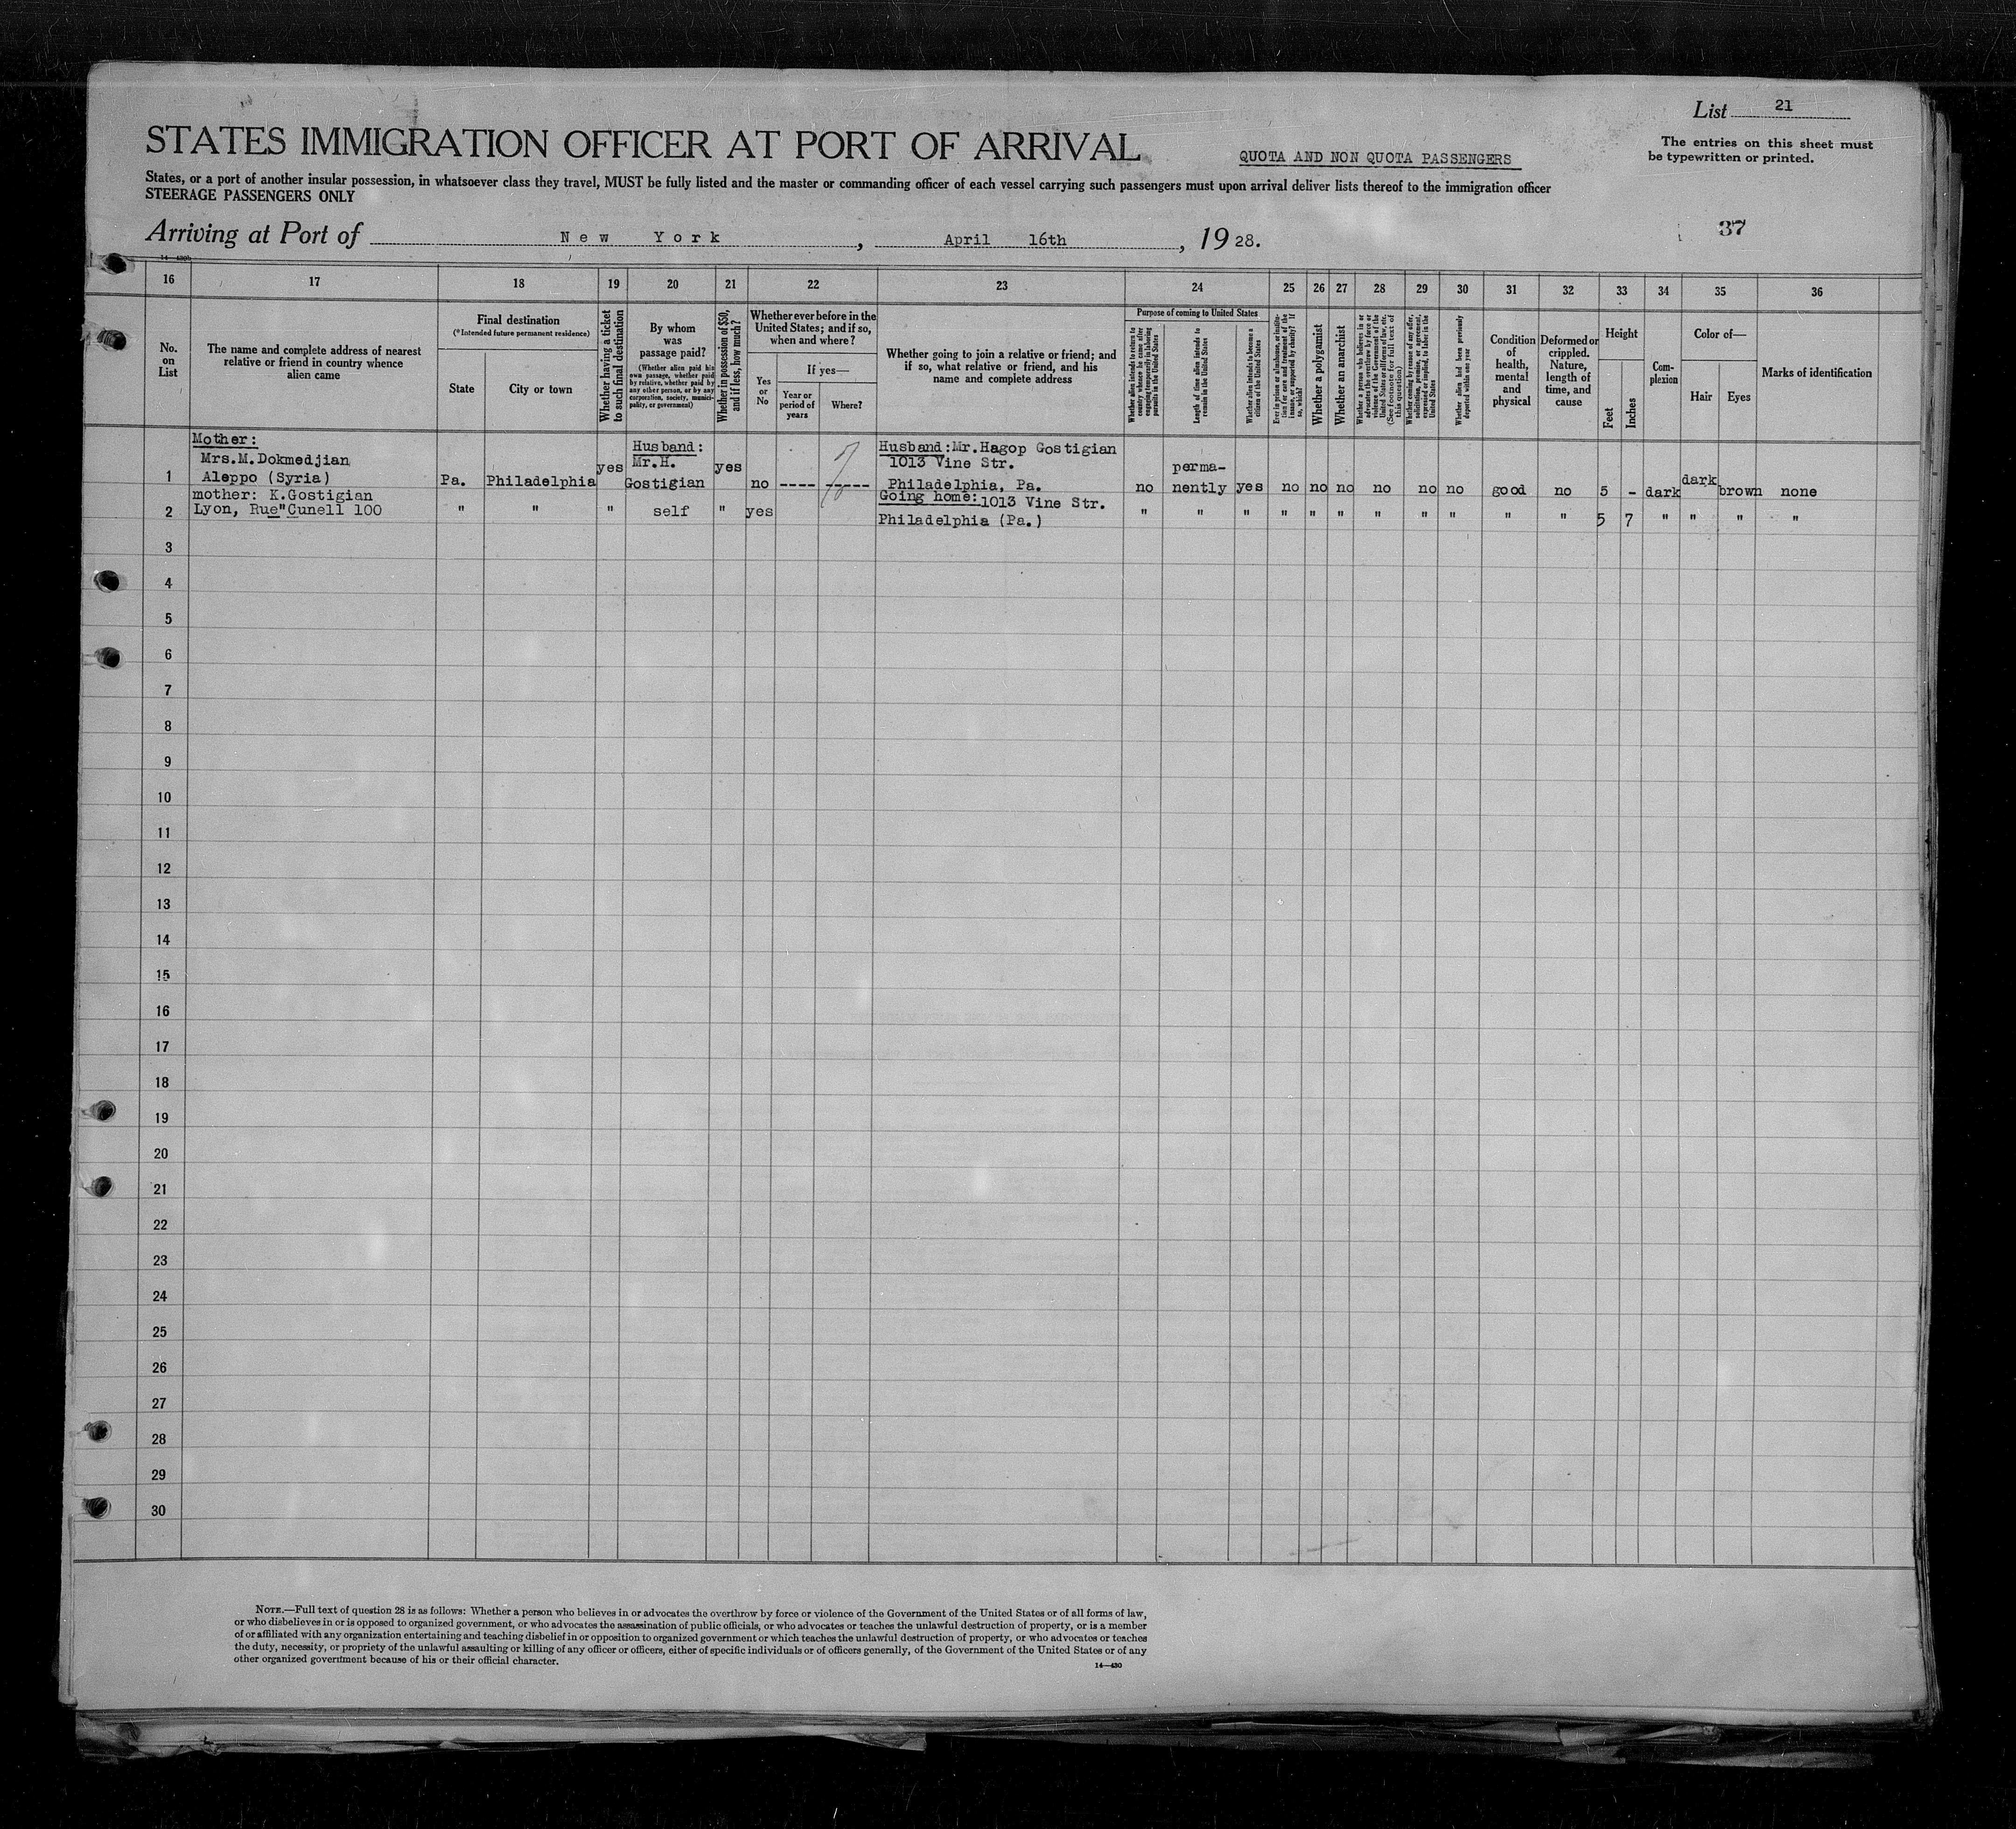 List 21
The entries on this sheet must
be typewritten or printed.
STATES IMMIGRATION OFFICER AT PORT OF ARRIVAL
QUOTA AND NON QUOTA PASSENGERS
States, or a port of another insular possession, in whatsoever class they travel, MUST be fully listed and the master or commanding officer of each vessel carrying such passengers must upon arrival deliver lists thereof to the immigration officer
STEERAGE PASSENGERS ONLY
37
Arriving at Port of New York, April 16th, 1928.
16 17 18 19 20 21 22 23 24 25 26 27 28 29 30 31 32 33 34 35 36
No.
on
List
The name and complete address of nearest
relative or friend in country whence
alien came
Final destination
(*Intended future permanent residence)
State
City or town
Whether having a ticket
to such final destination
By whom
was
passage paid?
(Whether alien paid his
own passage, whether paid
by relative, whether paid by
any other person, or by any
corporation, society, munici-
pality, or government)
Whether in possession of $50,
and if less, how much?
Whether ever before in the
United States; and if so,
when and where?
Yes
or
No
If yes—
Year or
period of
years
Where?
Whether going to join a relative or friend; and
if so, what relative or friend, and his
name and complete address
Purpose of coming to United States
Whether alien intends to return to
country whence he came after
engaging temporarily in laboring
pursuits in the United States
Length of time alien intends to
remain in the United States
Whether alien intends to become a
citizen of the United States
Ever in prison or almshouse, or institu-
tion for care and treatment of the
insane, or supported by charity? If
so, which?
Whether a polygamist
Whether an anarchist
Whether a person who believes in or
advocates the overthrow by force or
violence of the Government of the
United States or all forms of law, etc.
(See footnote for full text of
this question)
Whether coming by reason of any offer,
solicitation, promise, or agreement,
expressed or implied, to labor in the
United States
Whether alien had been previously
deported within one year
Condition
of
health,
mental
and
physical
Deformed or
crippled.
Nature,
length of
time, and
cause
Height
Feet
Inches
Com-
plexion
Color of—
Hair
Eyes
Marks of identification
Mother:
Mrs.M.Dokmedjian
1 Aleppo (Syria)
Pa.
Philadelphia
yes
Husband:
Mr.H.
Gostigian
yes
no ---- -----
Husband:Mr.Hagop Gostigian
1013 Vine Str.
Philadelphia, Pa.
no
perma-
nently
yes no no no no no no good no 5 - dark dark brown none
mother: K.Gostigian
2 Lyon, Rue"Cunell 100
" " " self " yes
Going home:1013 Vine Str.
Philadelphia (Pa.)
" " " " " " " " " " " 5 7 " " " "
3
4
5
6
7
8
9
10
11
12
13
14
15
16
17
18
19
20
21
22
23
24
25
26
27
28
29
30
NOTE.—Full text of question 28 is as follows: Whether a person who believes in or advocates the overthrow by force or violence of the Government of the United States or of all forms of law,
or who disbelieves in or is opposed to organized government, or who advocates the assassination of public officials, or who advocates or teaches the unlawful destruction of property, or is a member
of or affiliated with any organization entertaining and teaching disbelief in or opposition to organized government or which teaches the unlawful destruction of property, or who advocates or teaches
the duty, necessity, or propriety of the unlawful assaulting or killing of any officer or officers, either of specific individuals or of officers generally, of the Government of the United States or of any
other organized government because of his or their official character.
14—430